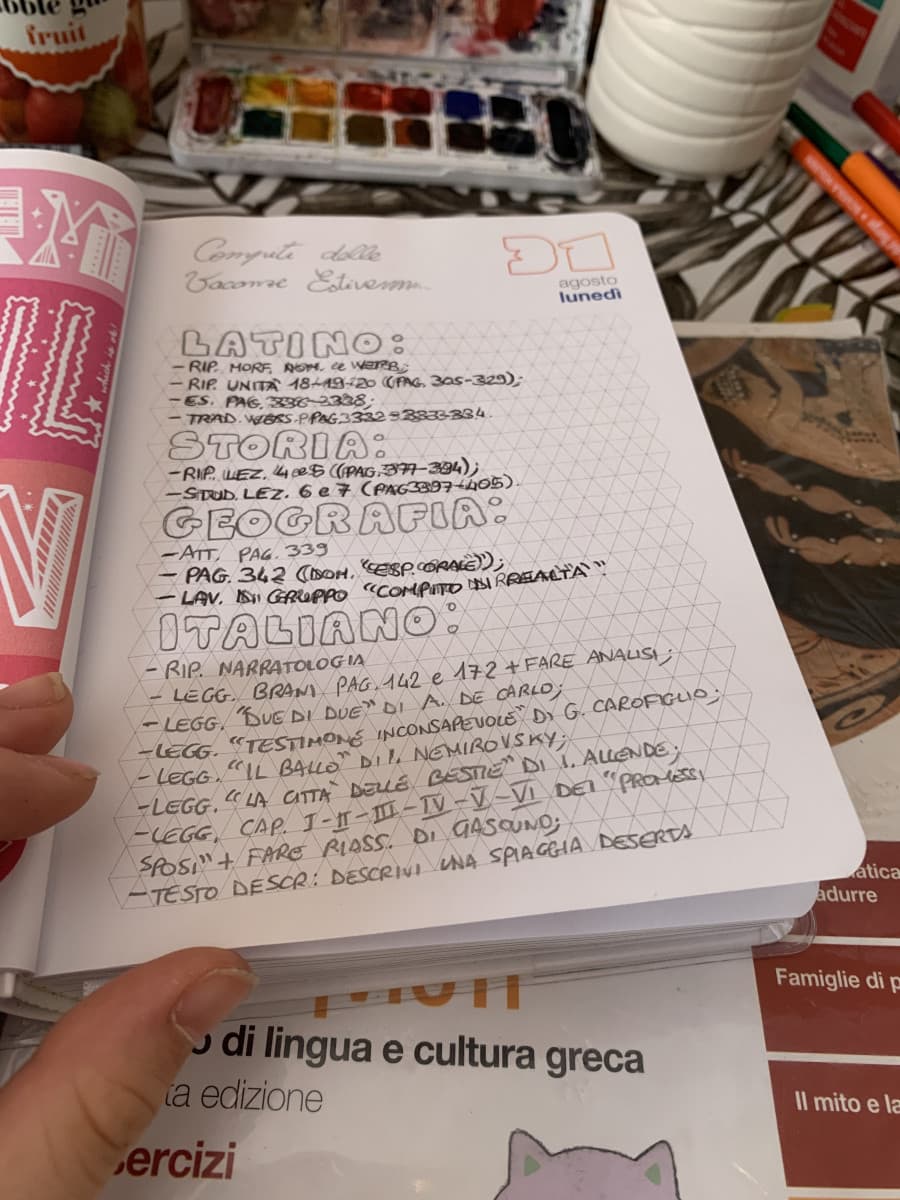 fruit
Compiti delle
Vacanze Estive
31
agosto
lunedì
which is ok!
LATINO:
- RIP. MORF. NOM. e VERB.;
- RIP. UNITÀ 18-19-20 (PAG. 305-329);
- ES. PAG.
- TRAD. VERS. PAG. 332-333-334.
STORIA:
- RIP. LEZ. 4 e 5 (PAG. 377-394);
- STUD. LEZ. 6 e 7 (PAG 397-405).
GEOGRAFIA:
- ATT. PAG. 339
- PAG. 342 (DOM. "ESP. ORALE");
- LAV. DI GRUPPO "COMPITO DI REALTÀ"
ITALIANO:
- RIP. NARRATOLOGIA
- LEGG. BRANI PAG. 142 e 172 + FARE ANALISI;
- LEGG. "DUE DI DUE" DI A. DE CARLO;
- LEGG. "TESTIMONE INCONSAPEVOLE" DI G. CAROFIGLIO;
- LEGG. "IL BALLO" DI I. NEMIROVSKY;
- LEGG. "LA CITTÀ DELLE BESTIE" DI I. ALLENDE;
- LEGG. CAP. I-II-III-IV-V-VI DEI "PROMESSI
SPOSI" + FARE RIASS. DI OGNUNO;
- TESTO DESCR: DESCRIVI UNA SPIAGGIA DESERTA
di lingua e cultura greca
edizione
adurre
Famiglie di p
Il mito e la